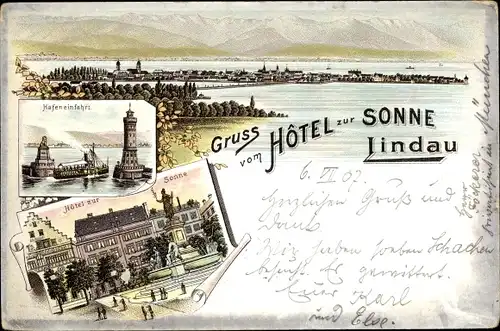 Hafeneinfahrt.
Gruss
vom HÔTEL zur SONNE
Lindau
Hôtel zur
Sonne
6. VII 07.
Herzlichen Gruß und
Dank.
Wir haben soeben Schachen
besucht. Es gewittert.
Euer Karl
und Else.